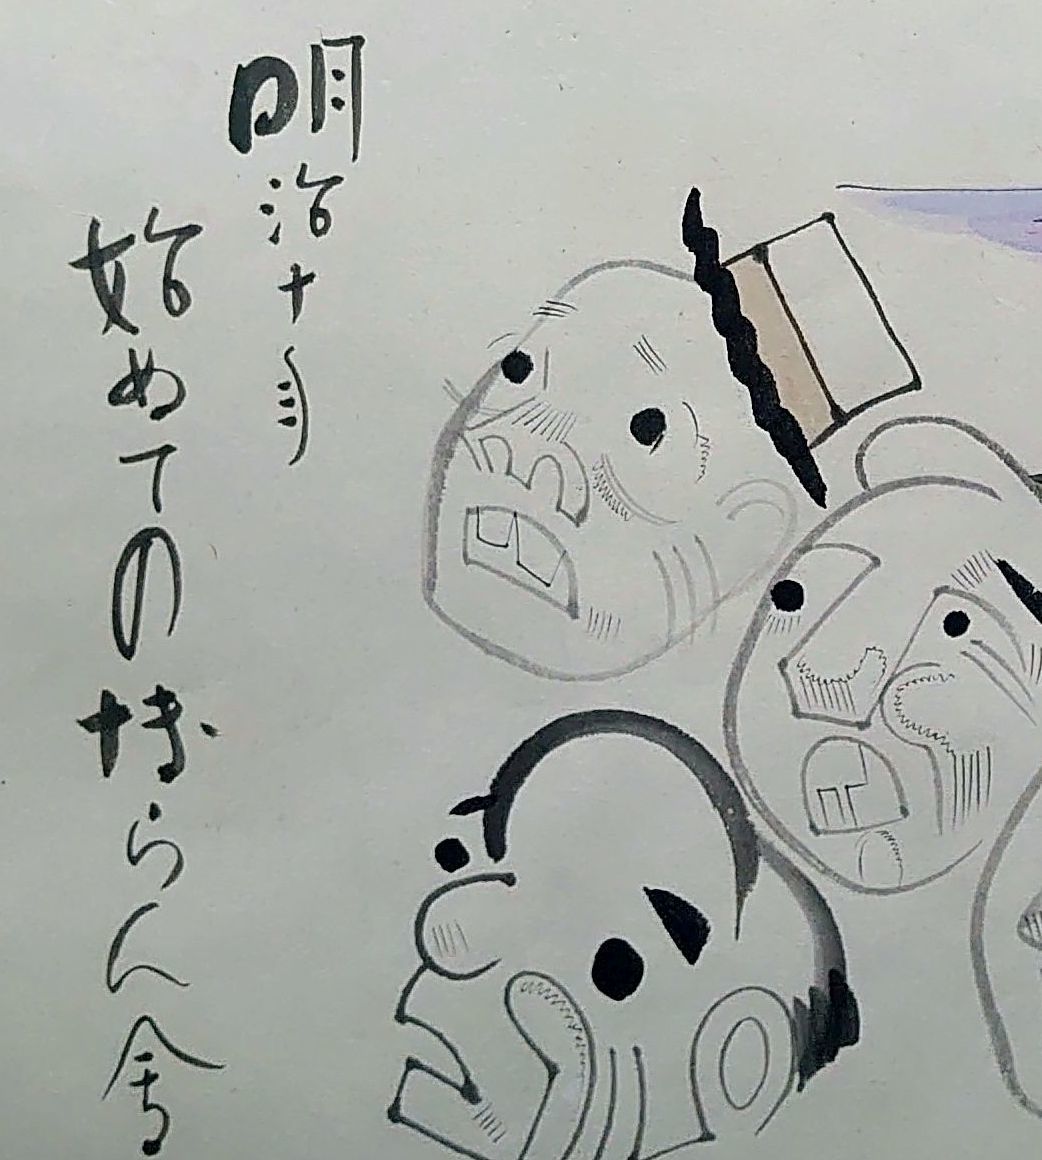 明治十年
始めての博らん會